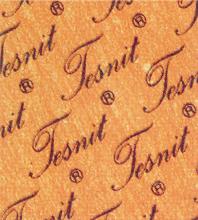 Tesnit
®
Tesnit
®
Tesnit
®
Tesnit
®
Tesnit
®
Tesnit
®
Tesnit
®